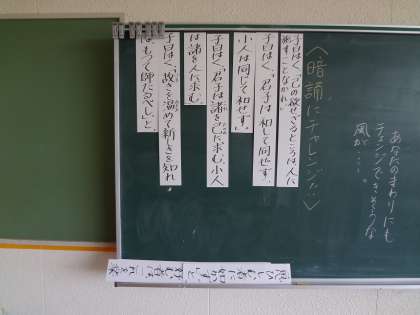 あなたのまわりにも
チェンジできそうな
風が・・・。
〈暗誦にチャレンジ！！〉
子曰はく、「己の欲せざるところは、人に
施すことなかれ。」
子曰はく、「君子は和して同ぜず。
小人は同じて和せず。」
子曰はく、「君子は諸を己に求む。小人
は諸を人に求む。」
子曰はく、「故きを温めて新しきを知れ
ば、もつて師たるべし。」と。